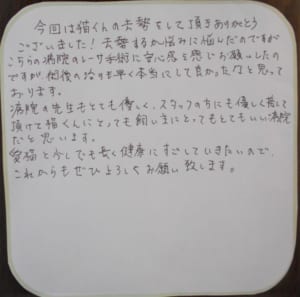 今回は猫くんの去勢をして頂きありがとう
ございました！去勢するか悩みに悩んだのですが
こちらの病院のレーザー手術に安心感を感じお願いしたの
ですが、術後の治りも早く本当にして良かったなと思って
おります。
病院の先生もとても優しく、スタッフの方にも優しく接して
頂けて猫くんにとっても飼い主にとってもとてもいい病院
だと思います。
愛猫と少しでも長く健康にすごしていきたいので、
これからもぜひよろしくお願い致します。